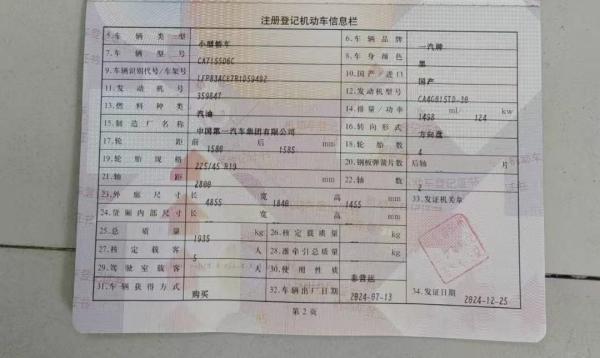 注册登记机动车信息栏
5.车辆类型 小型轿车 6.车辆品牌 一汽牌
7.车辆型号 CA7155D6C 8.车身颜色 黑
9.车辆识别代号/车架号 10.国产/进口 国产
11.发动机号 359847 12.发动机型号 CA4GB15TD-30
13.燃料种类 汽油 14.排量/功率 1498 ml/ 124 kw
15.制造厂名称 中国第一汽车集团有限公司 16.转向形式 方向盘
17.轮距 前 1580 后 1585 mm 18.轮胎数 4
19.轮胎规格 225/45 R19 20.钢板弹簧片数 后轴 片
21.轴距 2800 mm 22.轴数 2
23.外廓尺寸 长 4855 宽 1840 高 1455 mm 33.发证机关章
24.货厢内部尺寸 长 宽 高 mm
25.总质量 1935 kg 26.核定载质量 kg
27.核定载客 5 人 28.准牵引总质量 kg
29.驾驶室载客 人 30.使用性质 非营运
31.车辆获得方式 购买 32.车辆出厂日期 2024-07-13 34.发证日期 2024-12-25
第2页